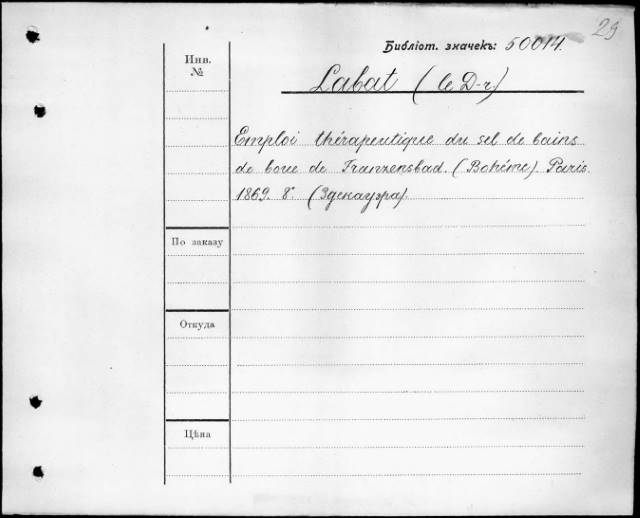 29
Библіот. значекъ: 50014.
Инв. №
Labat (le D-r)
Emploi thérapeutique du sel de bains
de boue de Franzensbad. (Bohéme) Paris.
1869. 8°. (Зденауэра).
По заказу
Откуда
Цѣна